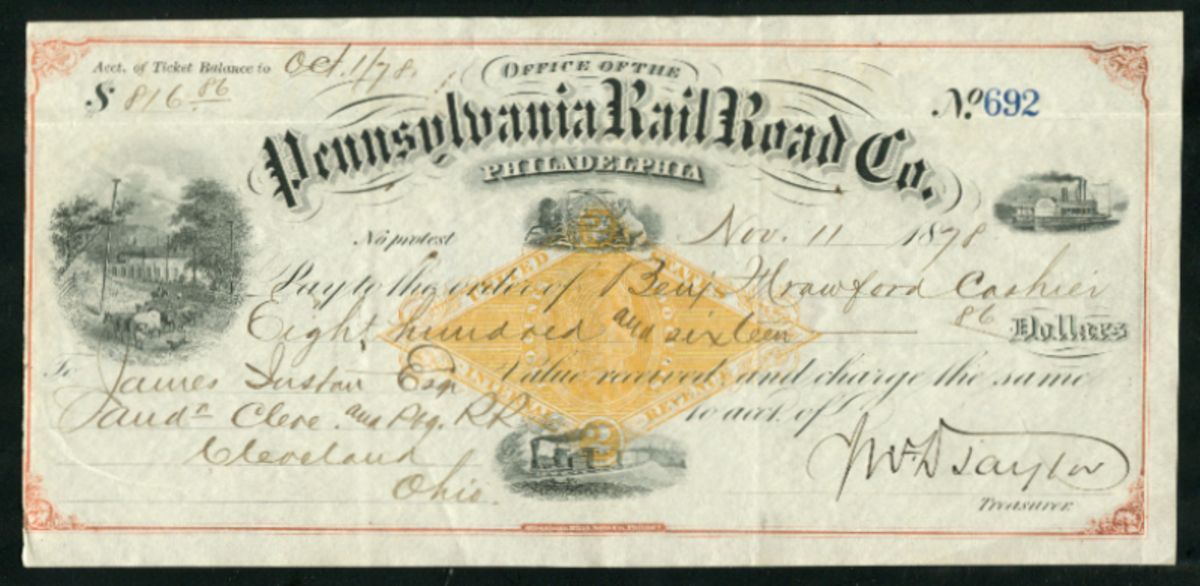 Acct. of Ticket Balance to Oct. 1/78.
$ 816.86
OFFICE OF THE
No. 692
Pennsylvania Rail Road Co.
PHILADELPHIA
No protest
Nov. 11 1878
Pay to the order of Benj Crawford Cashier
Eight hundred and sixteen 86 Dollars
UNITED STATES
INTERNAL REVENUE
2
2
To James Esqr Value received and charge the same
Cleve. and Pbg. RR to acct. of
Cleveland
Ohio.
Taylor
Treasurer.